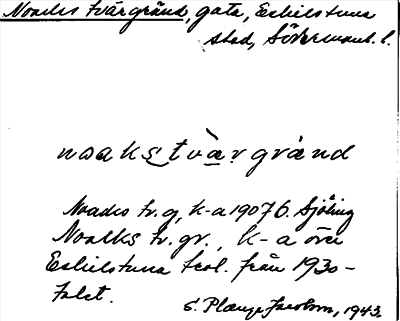 Noacks tvärgränd, gata, Eskilstuna
stad, Södermanl. l.
noakstvàrgränd
Noacks tv. g, k-a 19076. Sjöling
Noalks tv. gr., k-a över
Eskilstuna från 1930-
talet.
S. Plænge Jacobson, 1943.